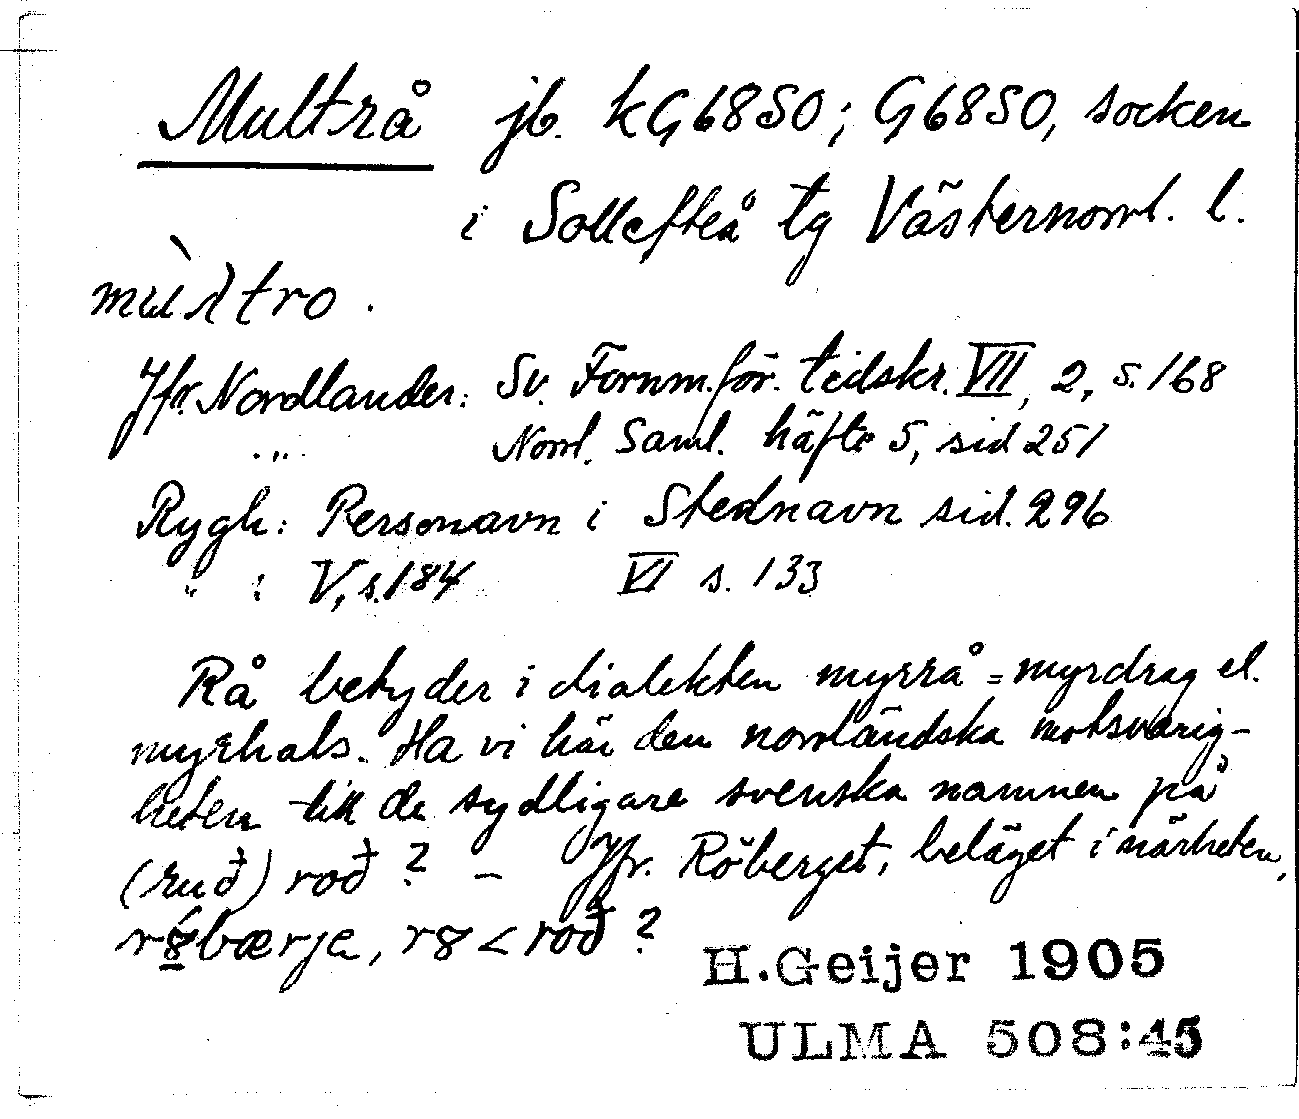 Multrå jb. kG6850; G6850, socken
i Sollefteå tg Västernorrl. l.
mùltro.
Jfr. Nordlander: Sv. Fornm.för. tidskr. VII, 2, s. 168
" Norrl. Saml. häfte 5, sid 251
Rygh: Personavn i Stednavn sid. 296
" : V, s. 184 VI s. 133
Rå betyder i dialekten myrrå = myrdrag el.
myrhals. Ha vi här den norrländska motsvarig-
heten till de sydligare svenska namnen på
(ruð) roð ? – Jfr. Röberget, beläget i närheten,
r8́bærje, r8 < roð ?
H.Geijer 1905
ULMA 508:45